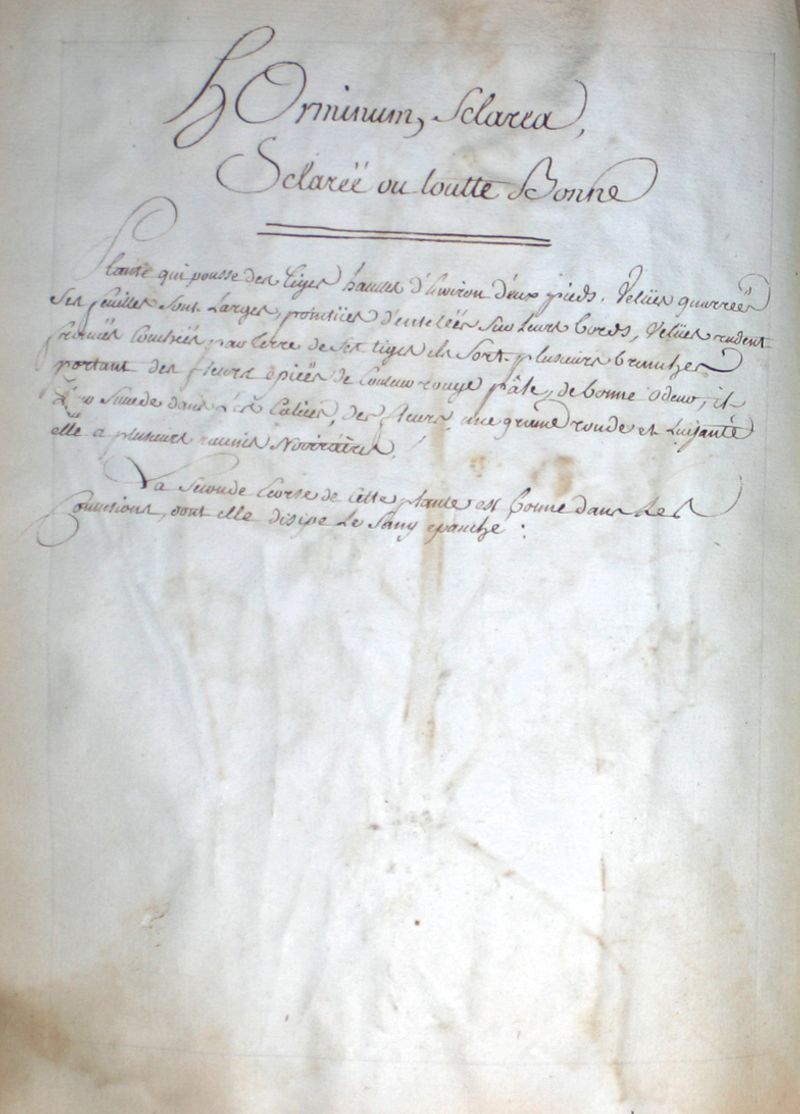 hOrminum, Sclarea,
Sclareë ou toutte Bonne
Plante qui pousse des tiges hautes d'Environ deux pieds. Velües quarreës
Ses feuilles sont Larges, pointües d'enteleés sur leurs bords, Velües rudent
par terre de ses tiges ils sort plusieurs branches
portant des fleurs épiceës de Couleur rouge pâle, de bonne odeur, il
Succede dans Calices, des fleurs, une graine ronde et Luisante
elle a plusieurs racines Noirâtres.
La Seconde Ecorse de Cette plante est bonne dans Les
Contusions, dont elle disipe Le Sang epanche :